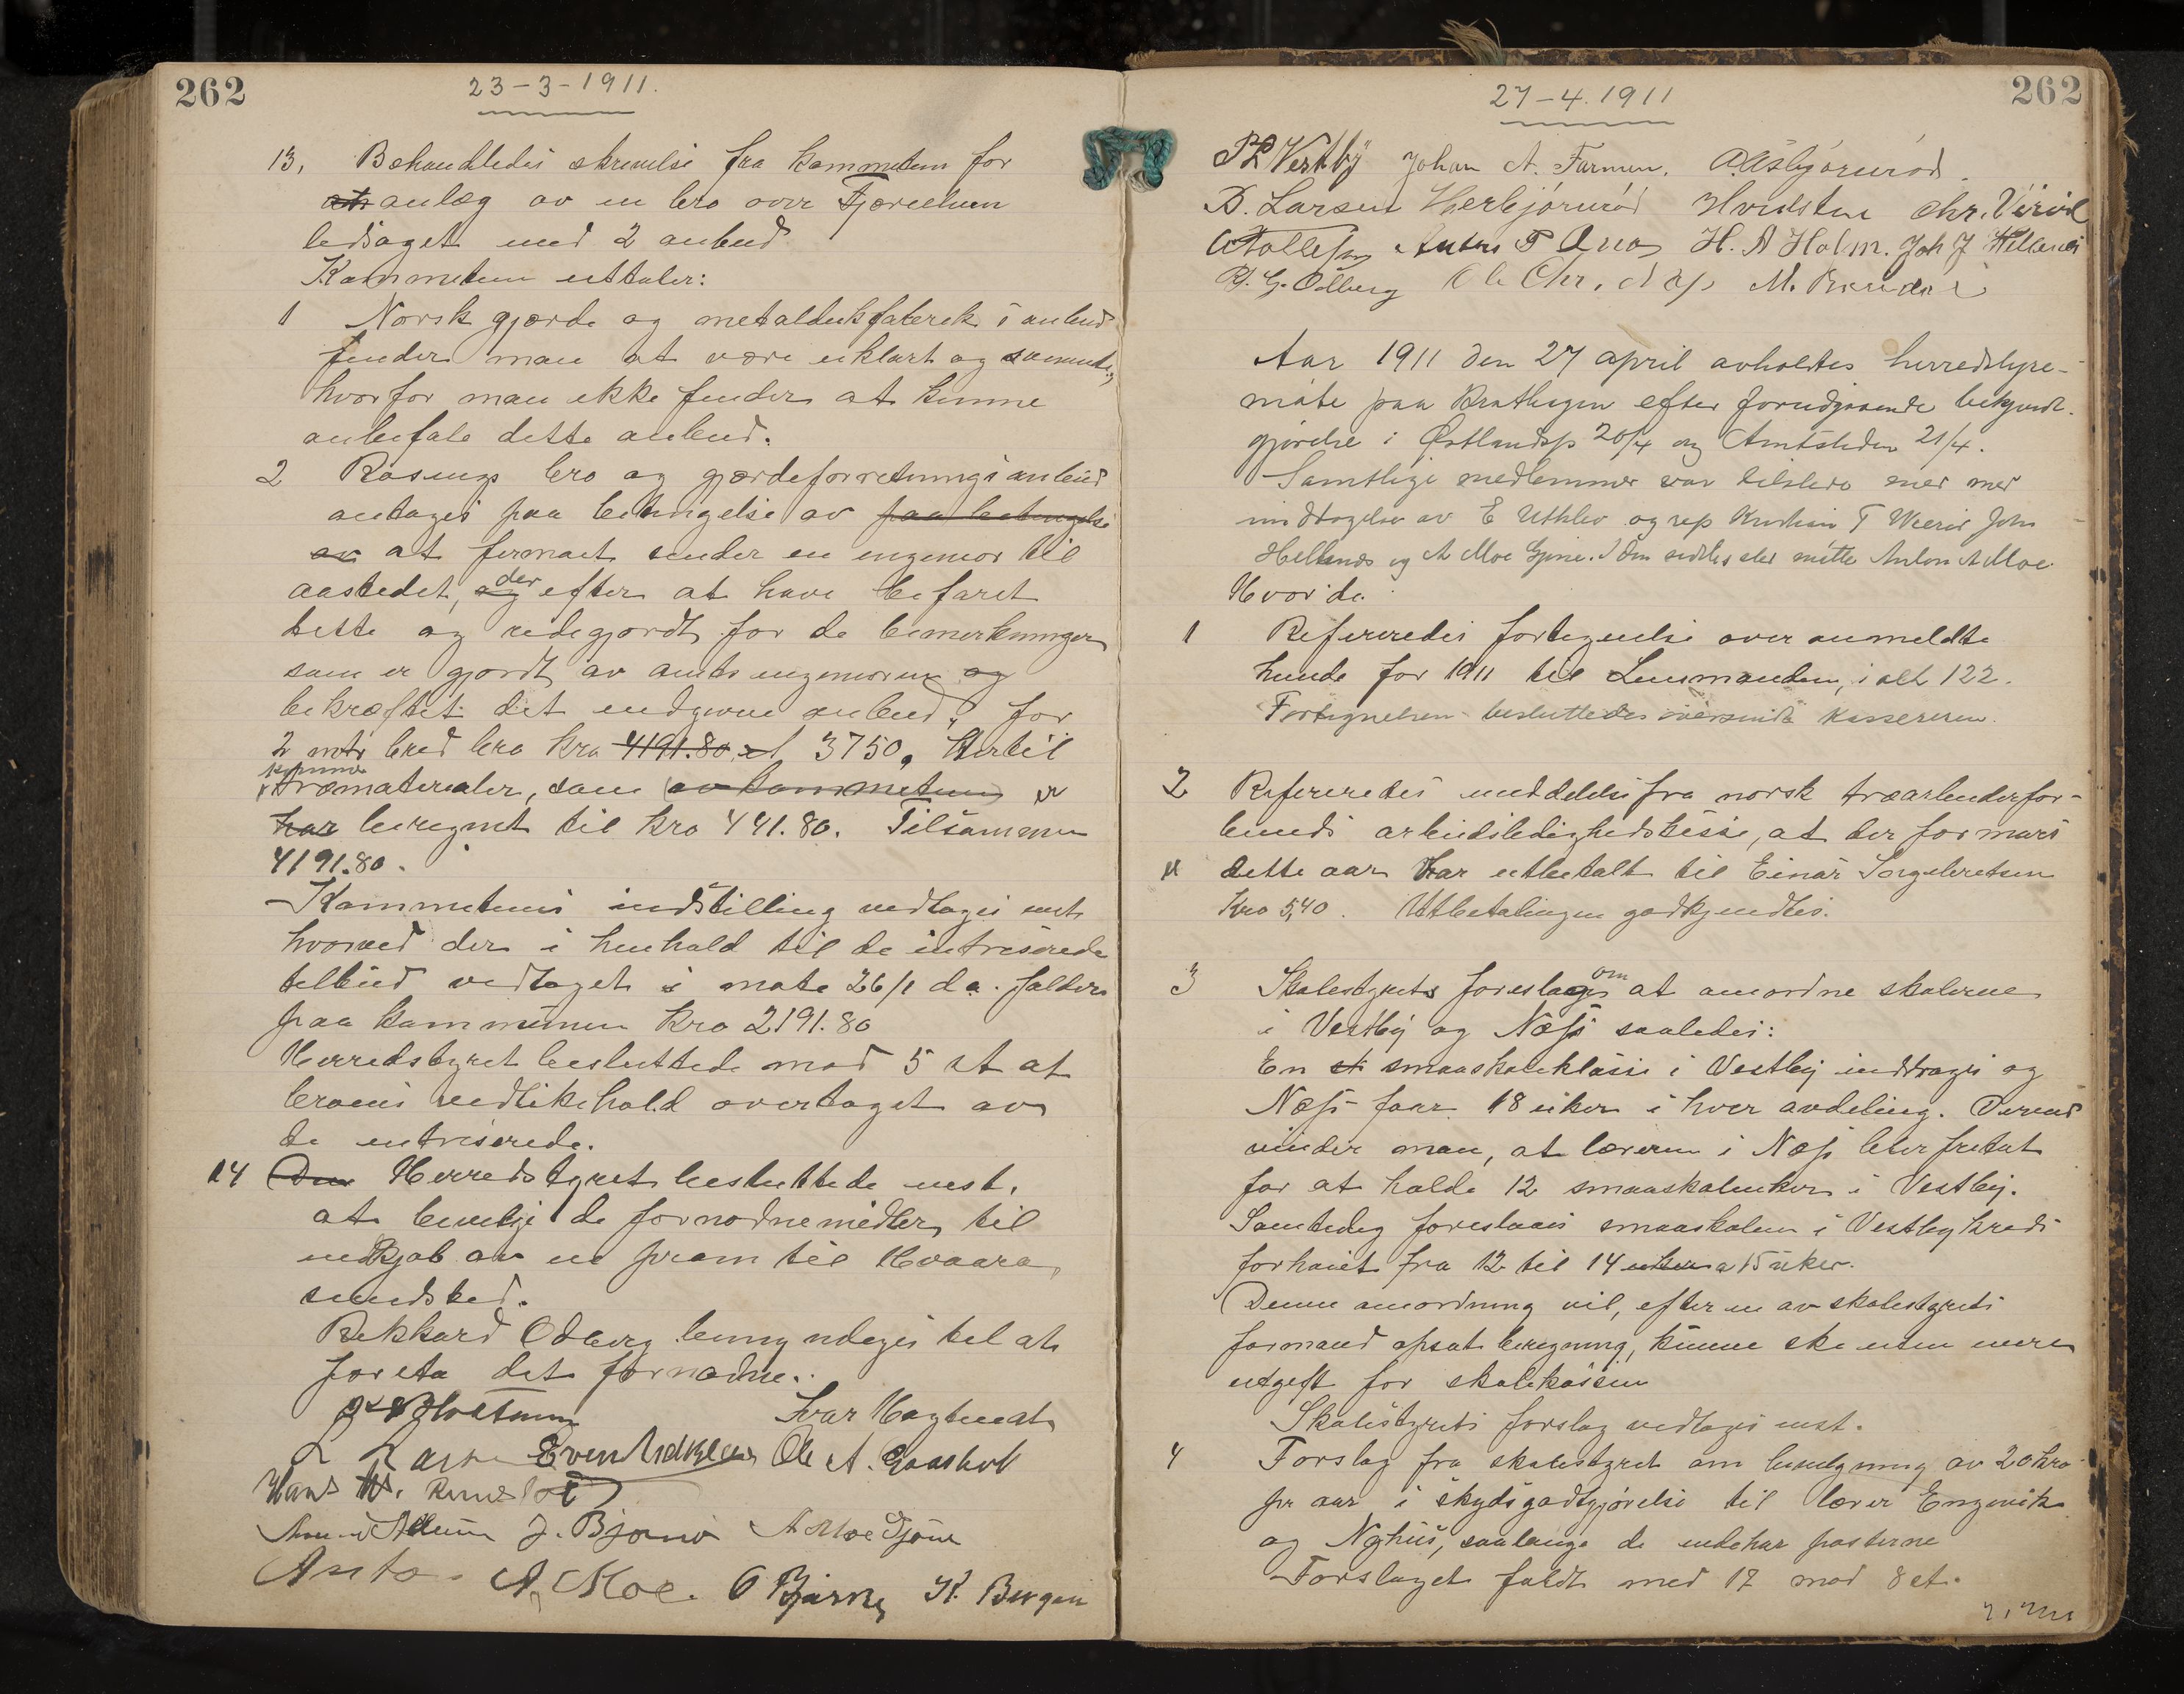 262
23-3-1911.
13. Behandledes skrivelse fra kommiteen for
at anlæg av en bro over Fjæreelven
ledsaget med 2 anbud.
Kommiteen uttaler:
1 Norsk gjærde og metaldukfabrik's anbud
finder man at være uklart og
hvorfor man ikke finder at kunne
anbefale dette anbud.
2 Rosings bro og gjærdeforretnings anbud
antages paa betingelse av paa betingelse
av at firmaet sender en ingeniør til
aastedet, og der efter at have befaret
dette og redegjordt for de bemerkninger
som er gjordt av amtsingeniøren og
bekræftet det endgivne anbud, for
2 mtr bred bro kro 4191.80, 3750, Hertil
kommer
træmaterialer, som av kommiteen er
har beregnet til kro 441.80. Tilsammen
4191.80.
Kommiteens indstilling vedtages enst.
hvorved der i henhold til de intreserede
tilbud vedtaget i møte 26/1 d.a. falder
paa kommunen kro 2191.80
Herredstyret besluttede mod 5 st at
broens vedlikehold overtaget av
de intreserede.
14 Den Herredstyret besluttede enst.
at bevilje de fornødne midler til
indkjøb av en pram til Hvaara
sundsted.
Rekkard Odberg bemyndiges til at
foreta det fornødne.
Holtmen Ivar Hagtvedt
L Larsen Even Lidklev Ole A. Gaasholt
Hans
J. Bjønnes A Moe Gjone
Anton A. Moe. O Bjerne K. Bergan
262
27-4.1911
P L Vestby Johan A. Farmen. O. Asbjørnrød.
D. Larsen Herbjørnrød Hvidsten Chr. Virid
A Tollefsen Anders T Aas H. A Holm. Joh J Hellenes
R. G. Ødberg Ole Chr. Næs M.
Aar 1911 den 27 april avholdtes herredstyre-
møte paa Brathagen efter forudgaaende bekjendt-
gjørelse i Østlandsp 20/4 og Amtstiden 21/4.
Samtlige medlemmer var tilstede med
undtagelse av E Uthlev og rep Kristian T Virid John
Hellenes og A Moe Gjone. I den sidstes sted møtte Anton A Moe
Hvor da
1 Refereredes fortegnelse over anmeldte
hunde for 1911 til Lensmanden, i alt 122.
Fortegnelsen besluttedes oversendt kassereren.
2 Refereredes meddelelse fra norsk træarbeiderfor-
bunds arbeidsledighedskasse, at der for mars
dette aar har utbetalt til Einar Ingebretsen
Kro 5,40. Utbetalingen godkjendtes.
3 Skolestyrets foreslages om at anordne skolerne
i Vestby og Næss saaledes:
En st smaaskoleklasse i Vestby inddrages og
Næss faar 18 uker i hver avdeling. Derved
vinder man, at læreren i Næss blir fritat
for at holde 12 smaaskoleuker i Vestby.
Samtidig foreslaaes smaaskolen i Vestby kreds
forhøiet fra 12 til 14 uker a 15 uker.
Denne anordning vil, efter en av skolestyrets
formand opsat beregning, kunne ske uten mere
utgift for skolekassen
Skolestyrets forslag vedtages enst.
4 Forslag fra skolestyret om bevilgning av 20 kro
pr aar i skydsgodtgjørelse til lærer Engevik
og Nyhus, saalænge de indehar posterne
Forslaget faldt med 17 mod 8 st.